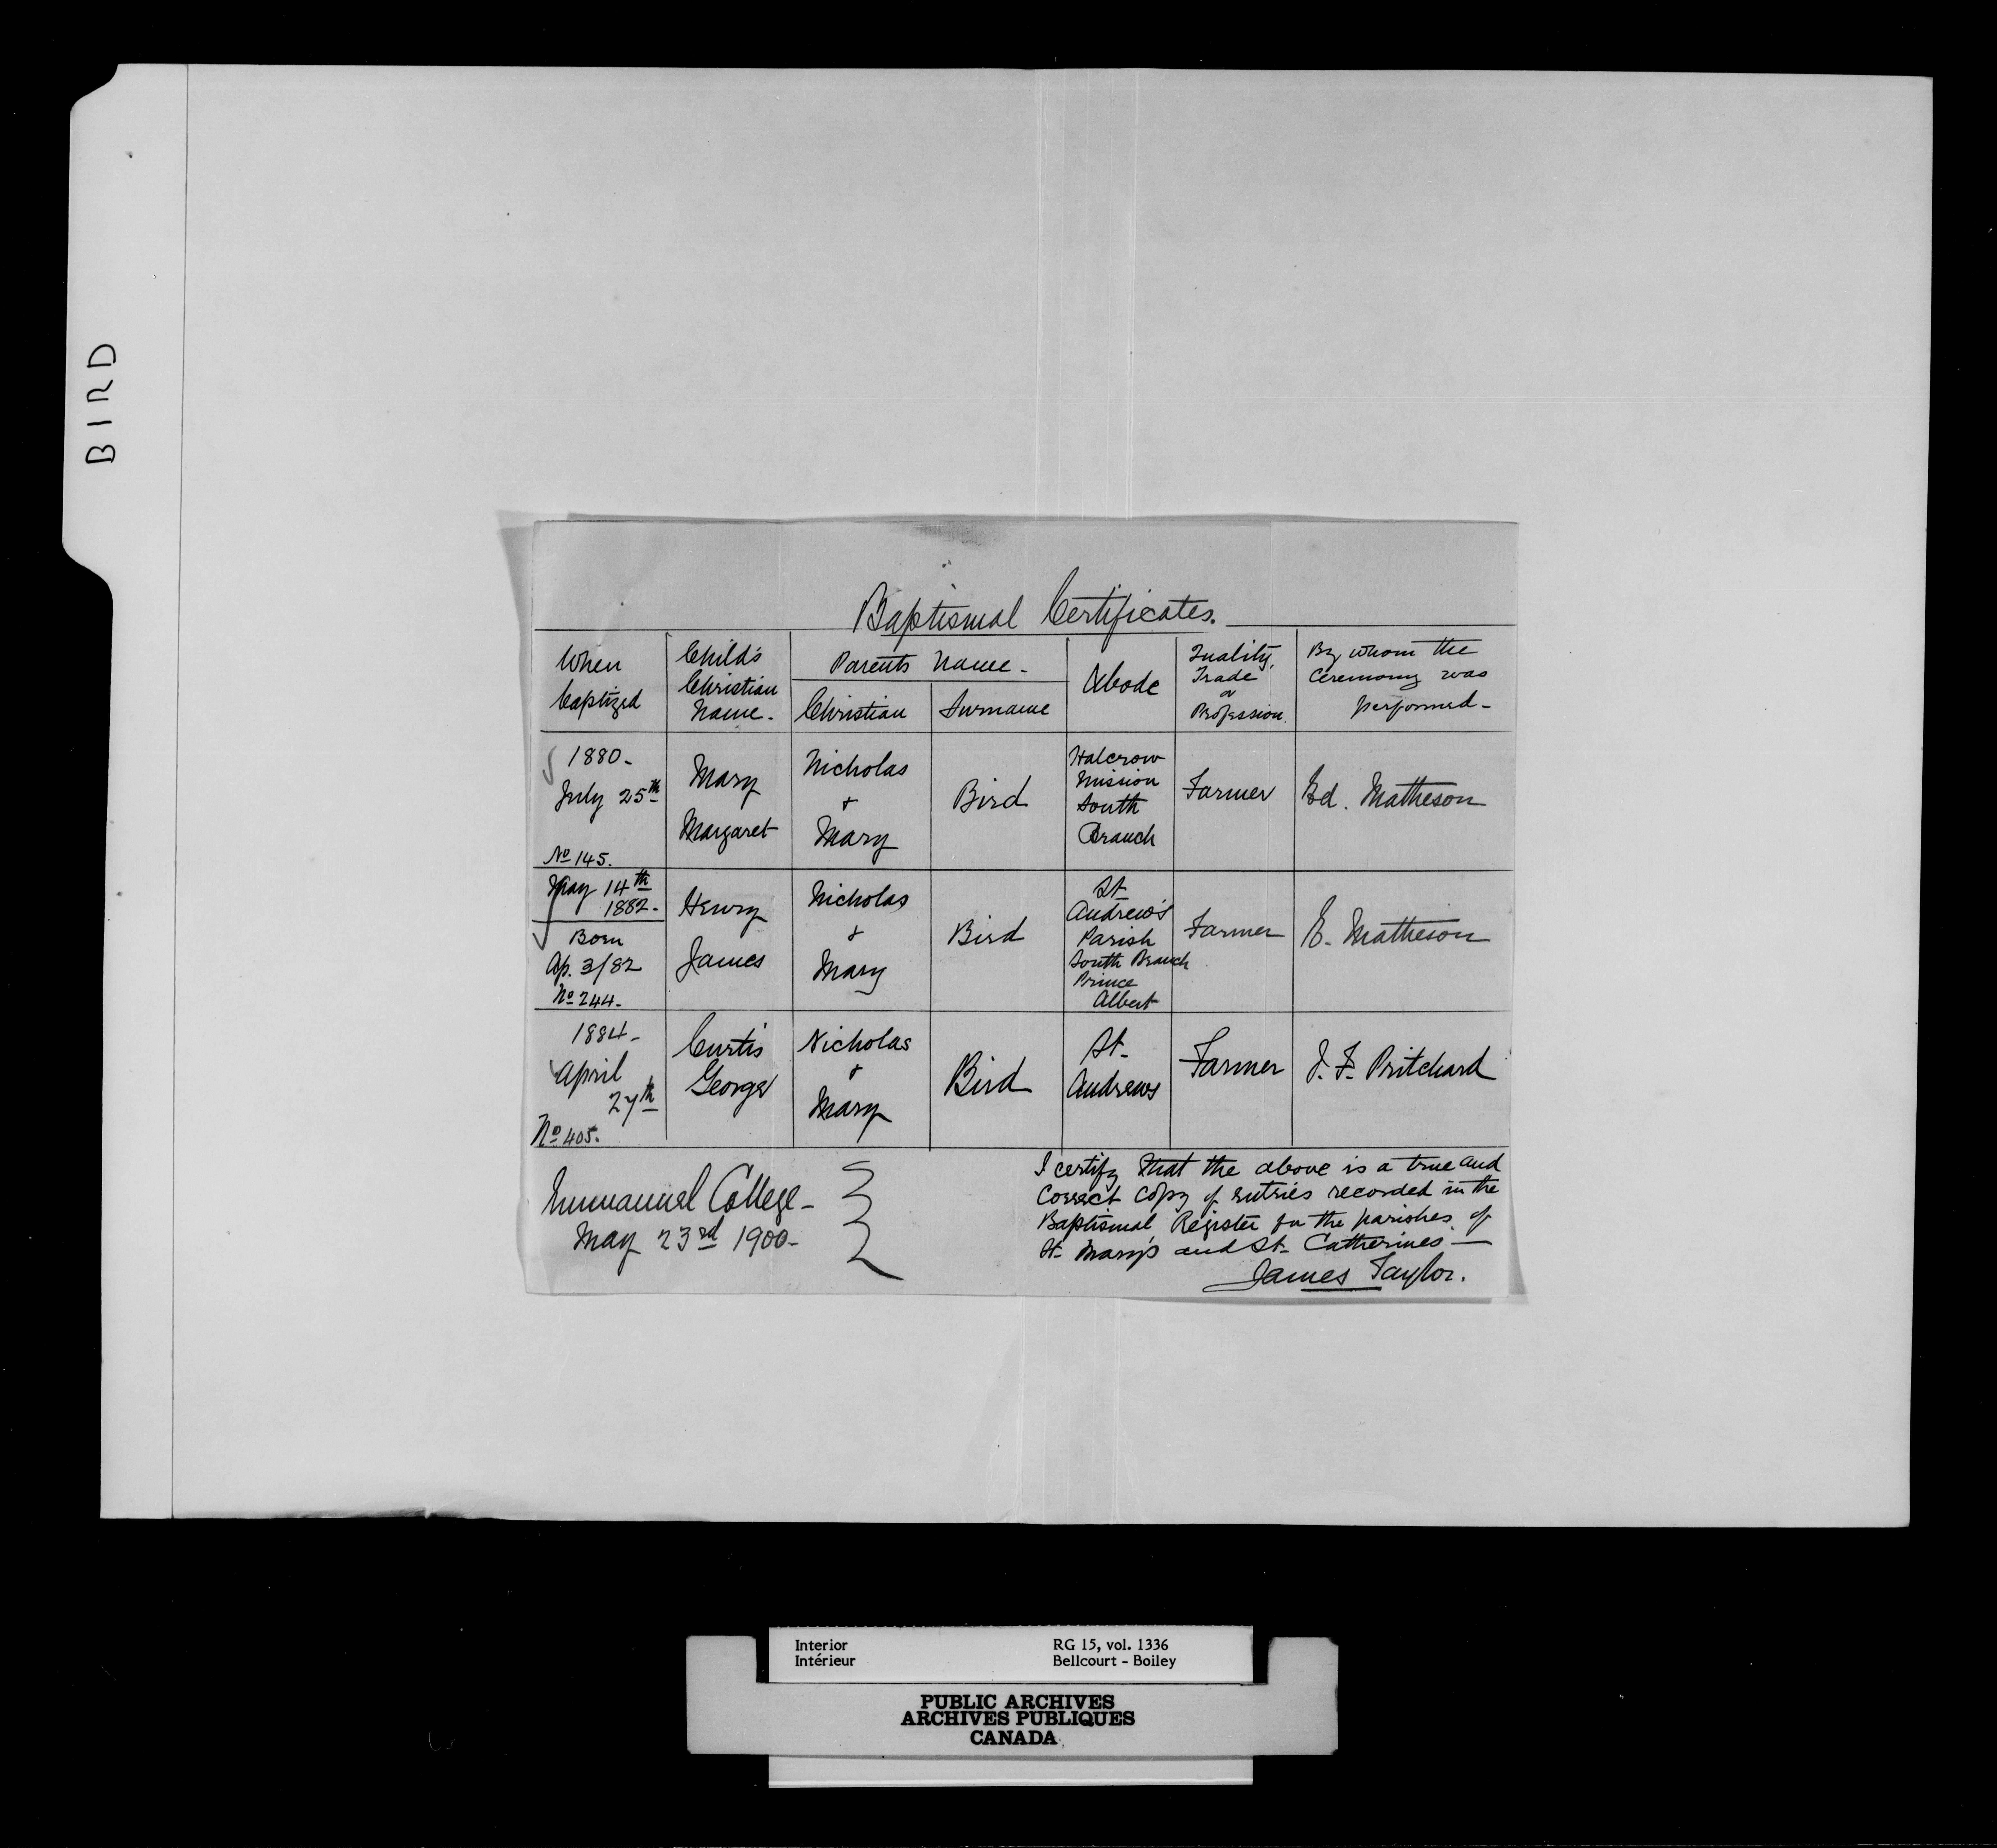 BIRD
Baptismal Certificates.
When baptized
Child's Christian Name.
Parents Name.
Christian
Surname
Abode
Quality, Trade or Profession.
By whom the Ceremony was performed-
1880-
July 25th
No 145.
Mary
Margaret
Nicholas
&
Mary
Bird
Halcrow
Mission
South
Branch
Farmer
Ed. Matheson
May 14th
1882-
Born
Ap. 3/82
No 244-
Henry
James
Nicholas
&
Mary
Bird
St
Andrew's
Parish
South Branch
Prince
Albert
Farmer
E. Matheson
1884-
April
27th
No 405.
Curtis
George
Nicholas
&
Mary
Bird
St-
Andrews
Farmer
J. F. Pritchard
Emmanuel College-
May 23rd 1900-
I certify that the above is a true and
Correct Copy of entries recorded in the
Baptismal Register for the parishes of
St- Mary's and St- Catherines-
James Taylor.
Interior
Intérieur
RG 15, vol. 1336
Bellcourt - Boiley
PUBLIC ARCHIVES
ARCHIVES PUBLIQUES
CANADA